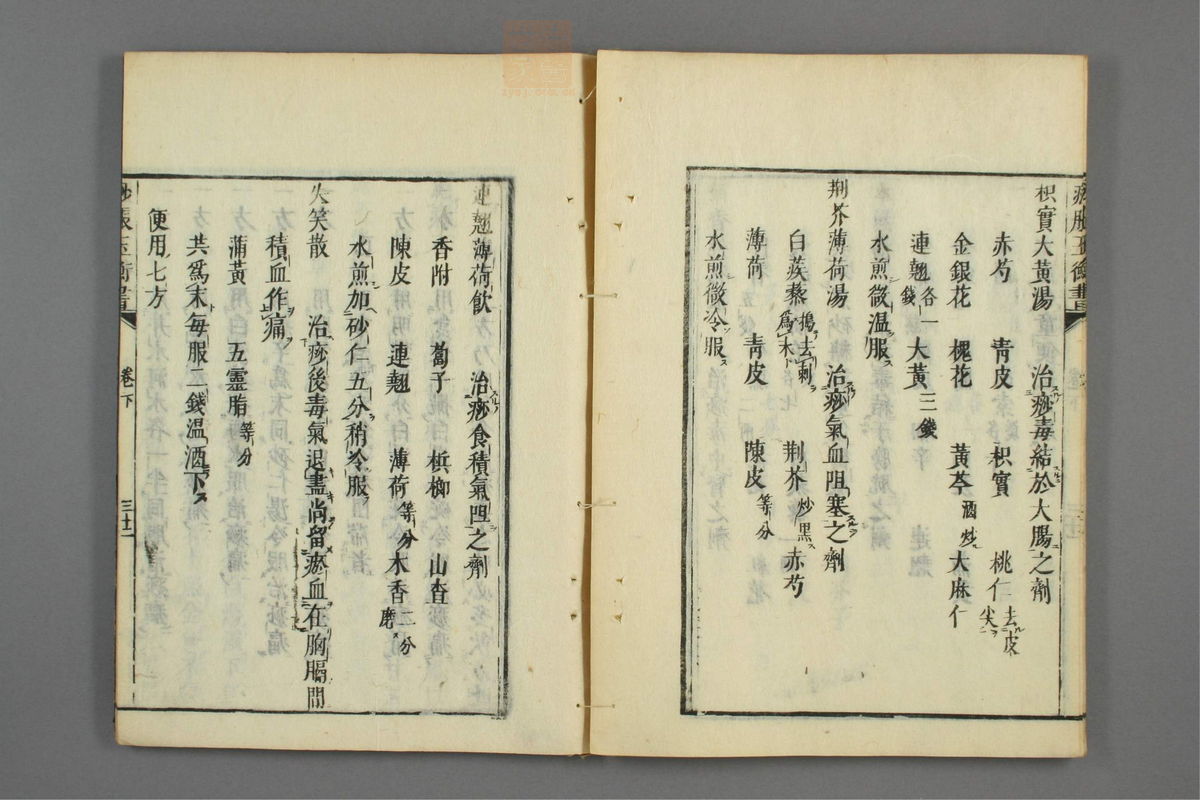 枳實大黃湯　治痧毒結於大腸之劑
赤芍　青皮　枳實　桃仁去皮尖
金銀花　槐花　黃芩酒炒　大麻仁
連翹各一錢　大黃三錢
水煎微温服
荆芥薄荷湯　治痧氣血阻塞之劑
白蒺藜搗去刺爲末　荆芥炒黑　赤芍
薄荷　青皮　陳皮等分
水煎微冷服
連翹薄荷飲　治痧食積氣阻之劑
香附　蔔子　檳榔　山查
陳皮　連翹　薄荷等分　木香二分磨
水煎加砂仁五分稍冷服
失笑散　治痧後毒氣退盡尚留瘀血在胸膈間
積血作痛
蒲黃　五靈脂等分
共爲末每服二錢温酒下
便用七方
痧脹玉衡書
卷下